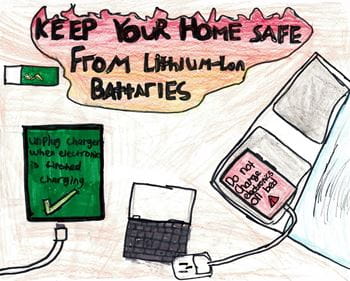 KEEP YOUR HOME SAFE
FROM LITHIUM-Ion
BATTARIES
unplug charger
when electronic
is finished
charging
Do not
charge
electronics
on bed